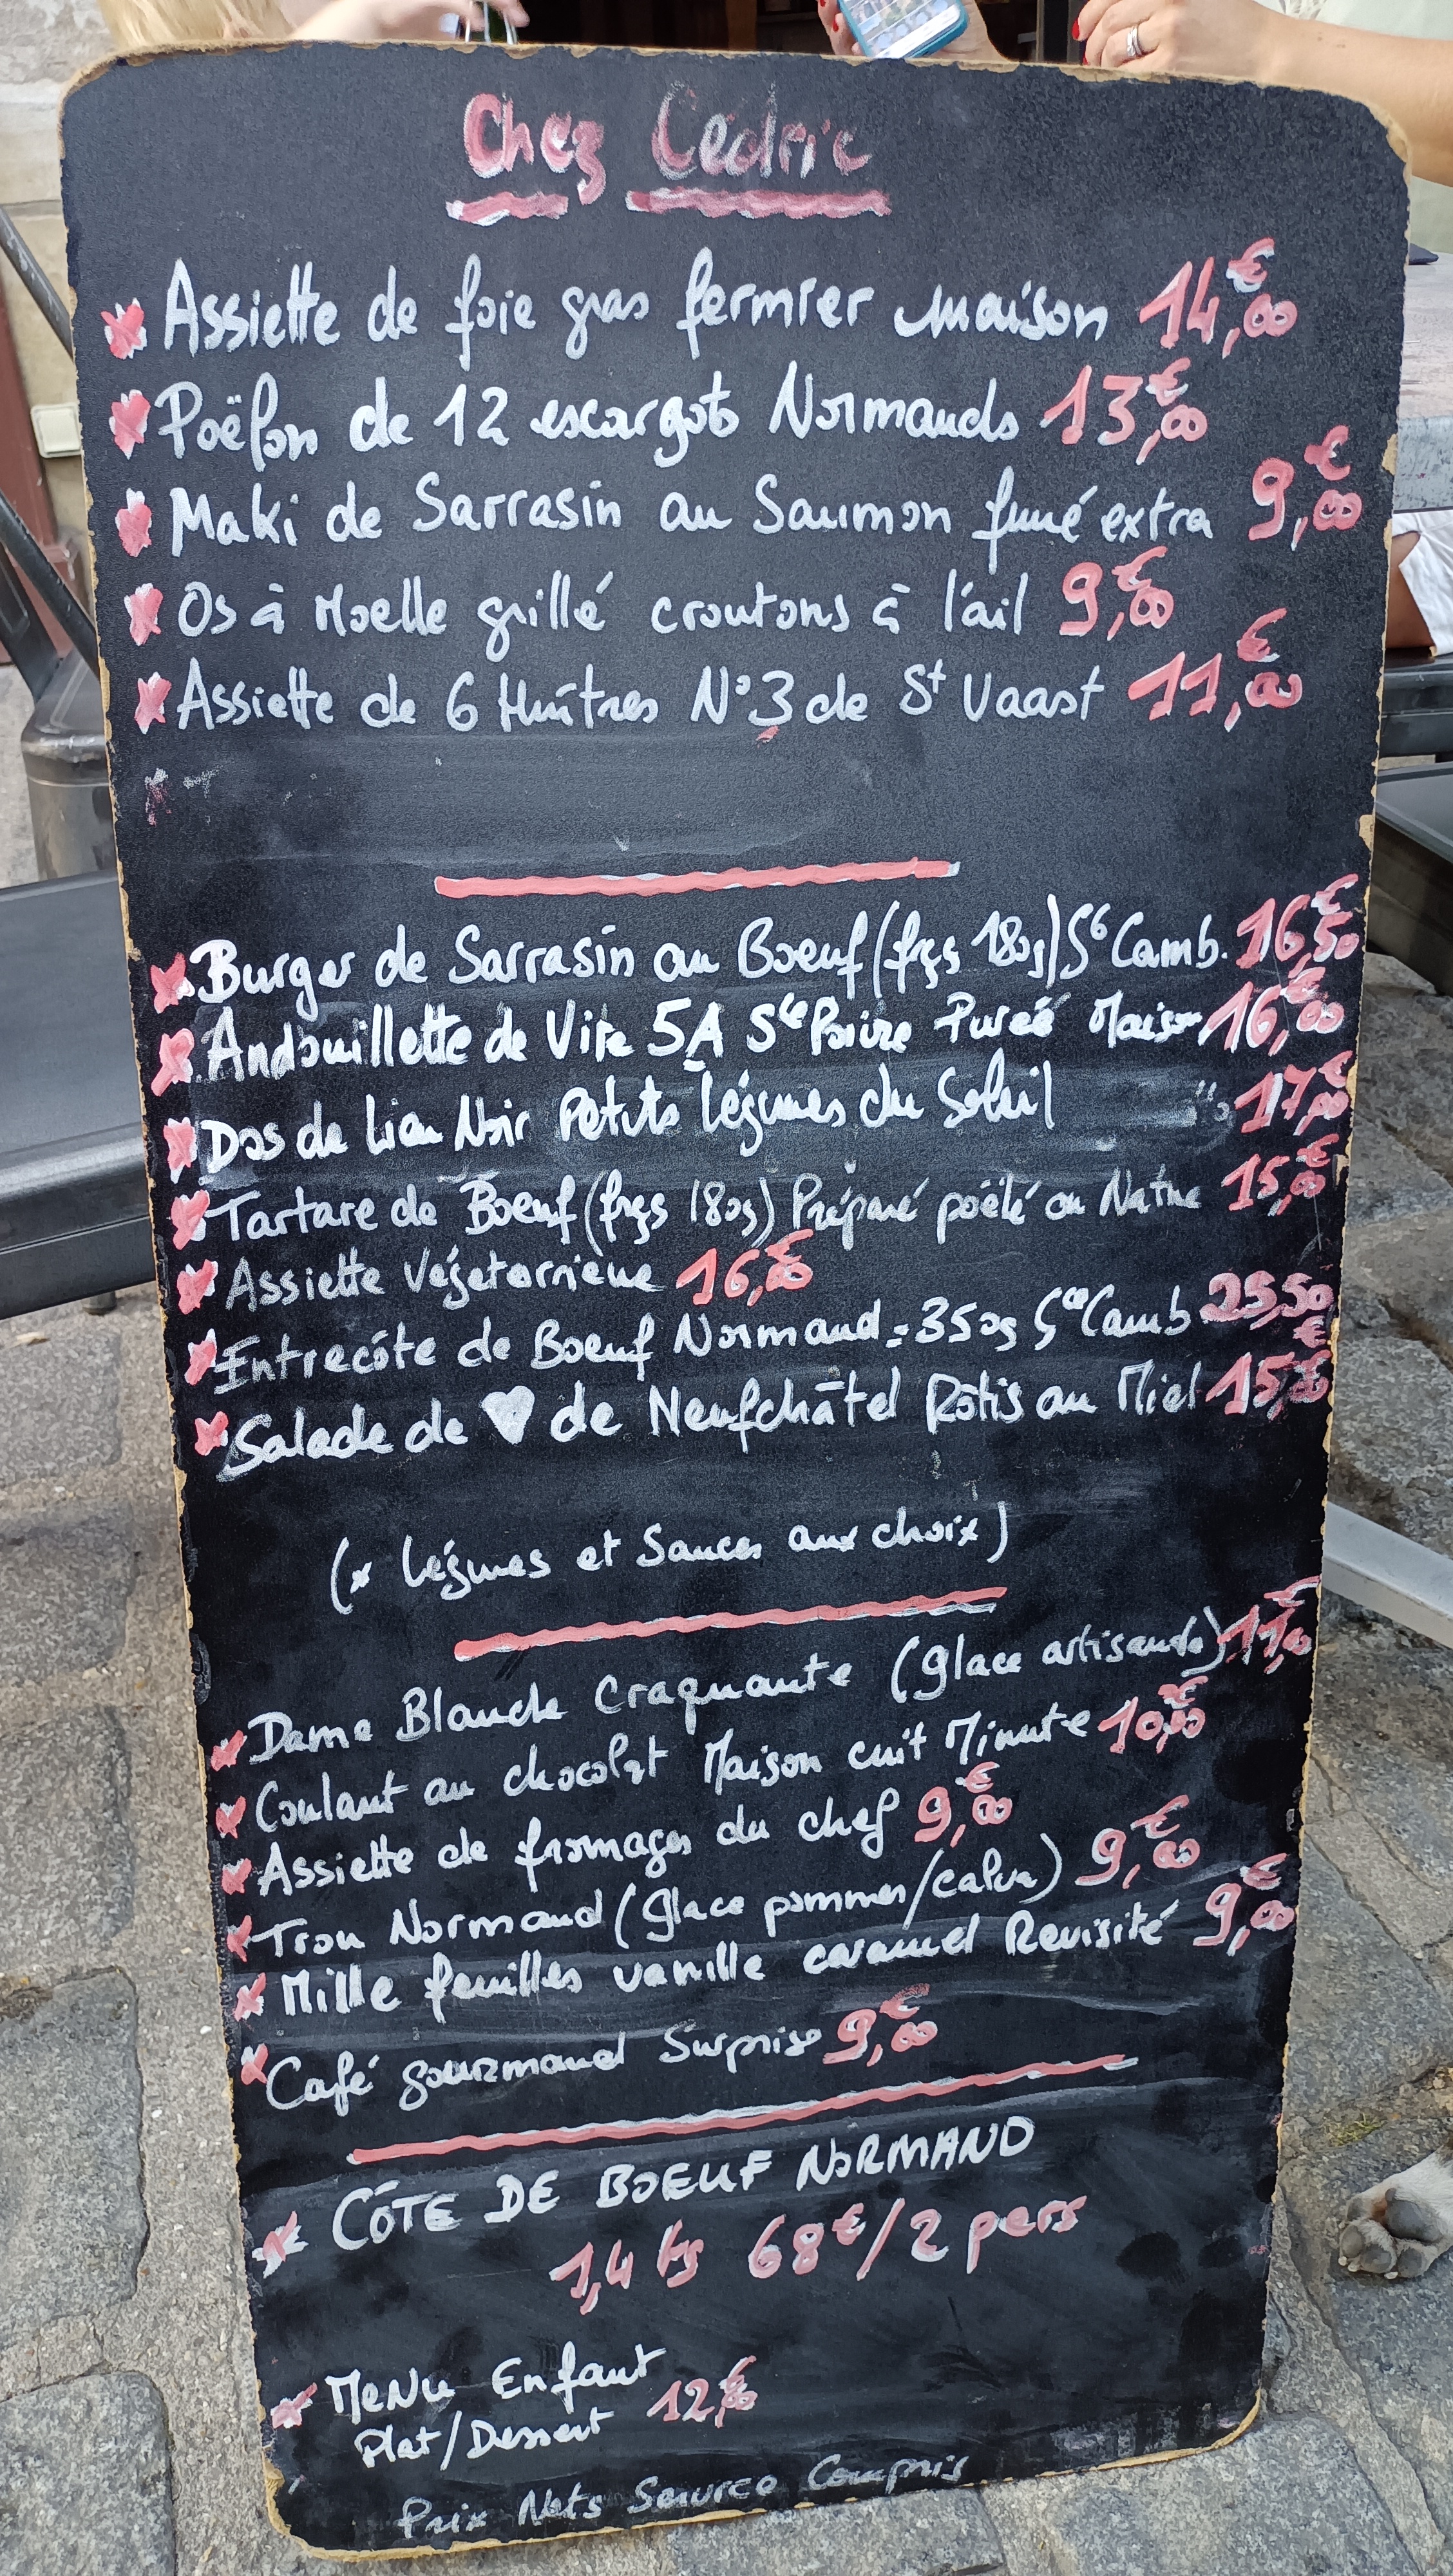 Chez Cédric
Assiette de foie gras fermier maison 14,00€
Poëlon de 12 escargots Normands 13,00€
Maki de Sarrasin au Saumon fumé extra 9,00€
Os à Moelle grillé croutons à l'ail 9,00€
Assiette de 6 Huîtres N°3 de St Vaast 11,00€
Burger de Sarrasin au Boeuf (frçs 180g) Camb. 16,50€
Andouillette de Vire 5A Sce Poivre Pureé Maison 16,00€
Dos de Lieu Noir Petits légumes du Soleil 17,00€
Tartare de Boeuf (frçs 180g) Préparé poëlé ou Nature 15,00€
Assiette Végetarriene 16,00€
Entrecôte de Boeuf Normand = 350g Sce Camb 25,50€
Salade de ♥ de Neufchâtel Rôtis au Miel 15,00€
(* Légumes et Sauces aux choix)
Dame Blanche Craquante (glace artisanale) 11,00€
Coulant au chocolat Maison cuit Minute 10,00€
Assiette de fromages du chef 9,00€
Trou Normand (glace pommes/calva) 9,00€
Mille feuilles vanille caramel Revisité 9,00€
Café gourmand Surprise 9,00€
CÔTE DE BOEUF NORMAND
1,4 kg 68€/2 pers
MeNu Enfant
Plat/Dessert 12,00€
Prix Nets Service Compris